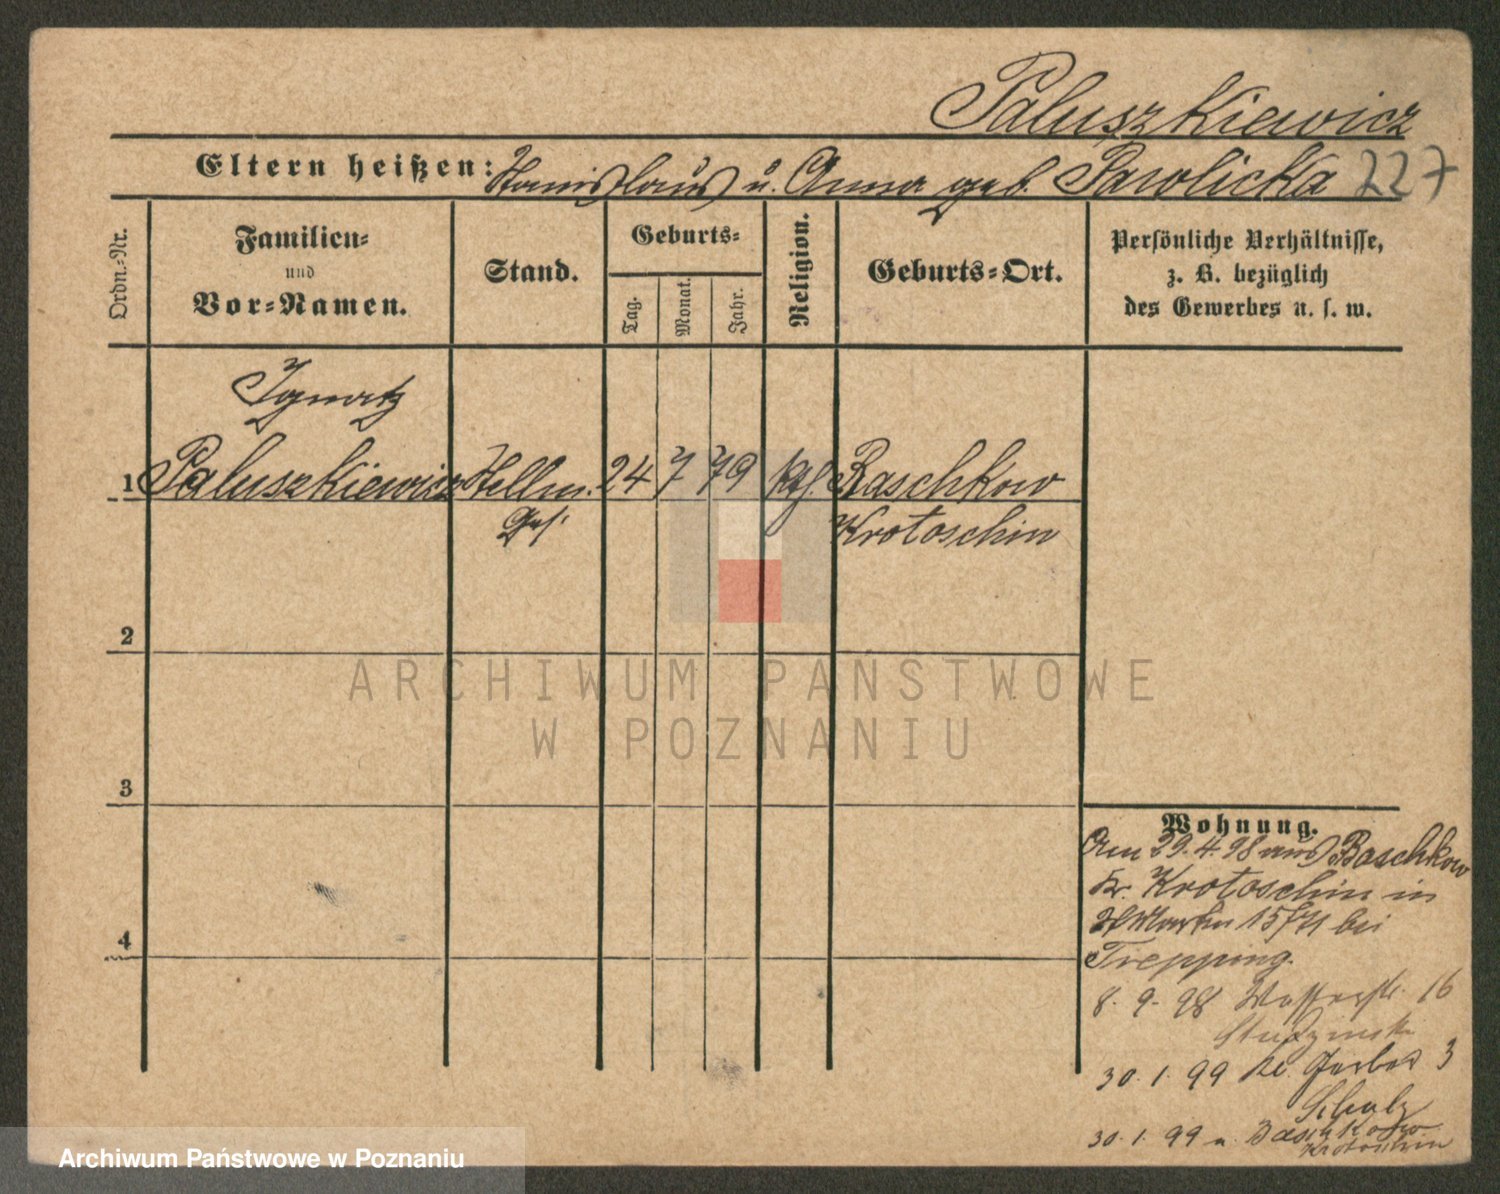 Paluszkiewicz
Eltern heißen: Stanislaus u. Anna geb. Pawlicka 227
Ordn.-Nr.
Familien-
und
Vor-Namen.
Stand.
Geburts-
Tag.
Monat.
Jahr.
Religion.
Geburts-Ort.
Persönliche Verhältnisse,
z. B. bezüglich
des Gewerbes u. s. w.
Ignatz
1 Paluszkiewicz Stellm. 24 7 79 kth. Baschkow
Ges. Krotoschin
2
3
4
Wohnung.
Am 29.4.98 aus Baschkow
Kr. Krotoschin in
15/71 bei
Trepping.
8.9.98 Wasserstr. 16
Studzinski
30.1.99 Kl. Gerber 3
Schulz
30.1.99 n. Baschkow
Krotoschin
ARCHIWUM PAŃSTWOWE
W POZNANIU
Archiwum Państwowe w Poznaniu